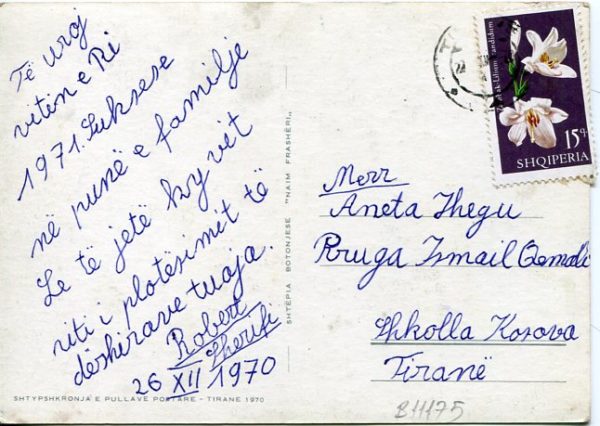 Të uroj
vitin e Ri
1971. Suksese
në punë e familje
Le të jetë ky vit
viti i plotësimit të
dëshirave tuaja.
Robert
Sherifi
26 XII 1970
SHTYPSHKRONJA E PULLAVE POSTARE - TIRANE 1970
SHTËPIA BOTONJESE "NAIM FRASHËRI"
15q
SHQIPERIA
Merr
Aneta Shegu
Rruga Ismail Qemali
Shkolla Kosova
Tiranë
811175